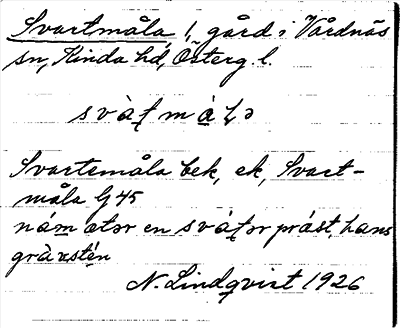 Svartmåla, 1, gård i Vårdnäs
sn, Kinda hd, Österg. l.
svàʈmåLə
Svartemåla bek, ek, Svart-
måla G 45
nám ætər en sváʈər präst, hans
gràvstén
N. Lindqvist 1926